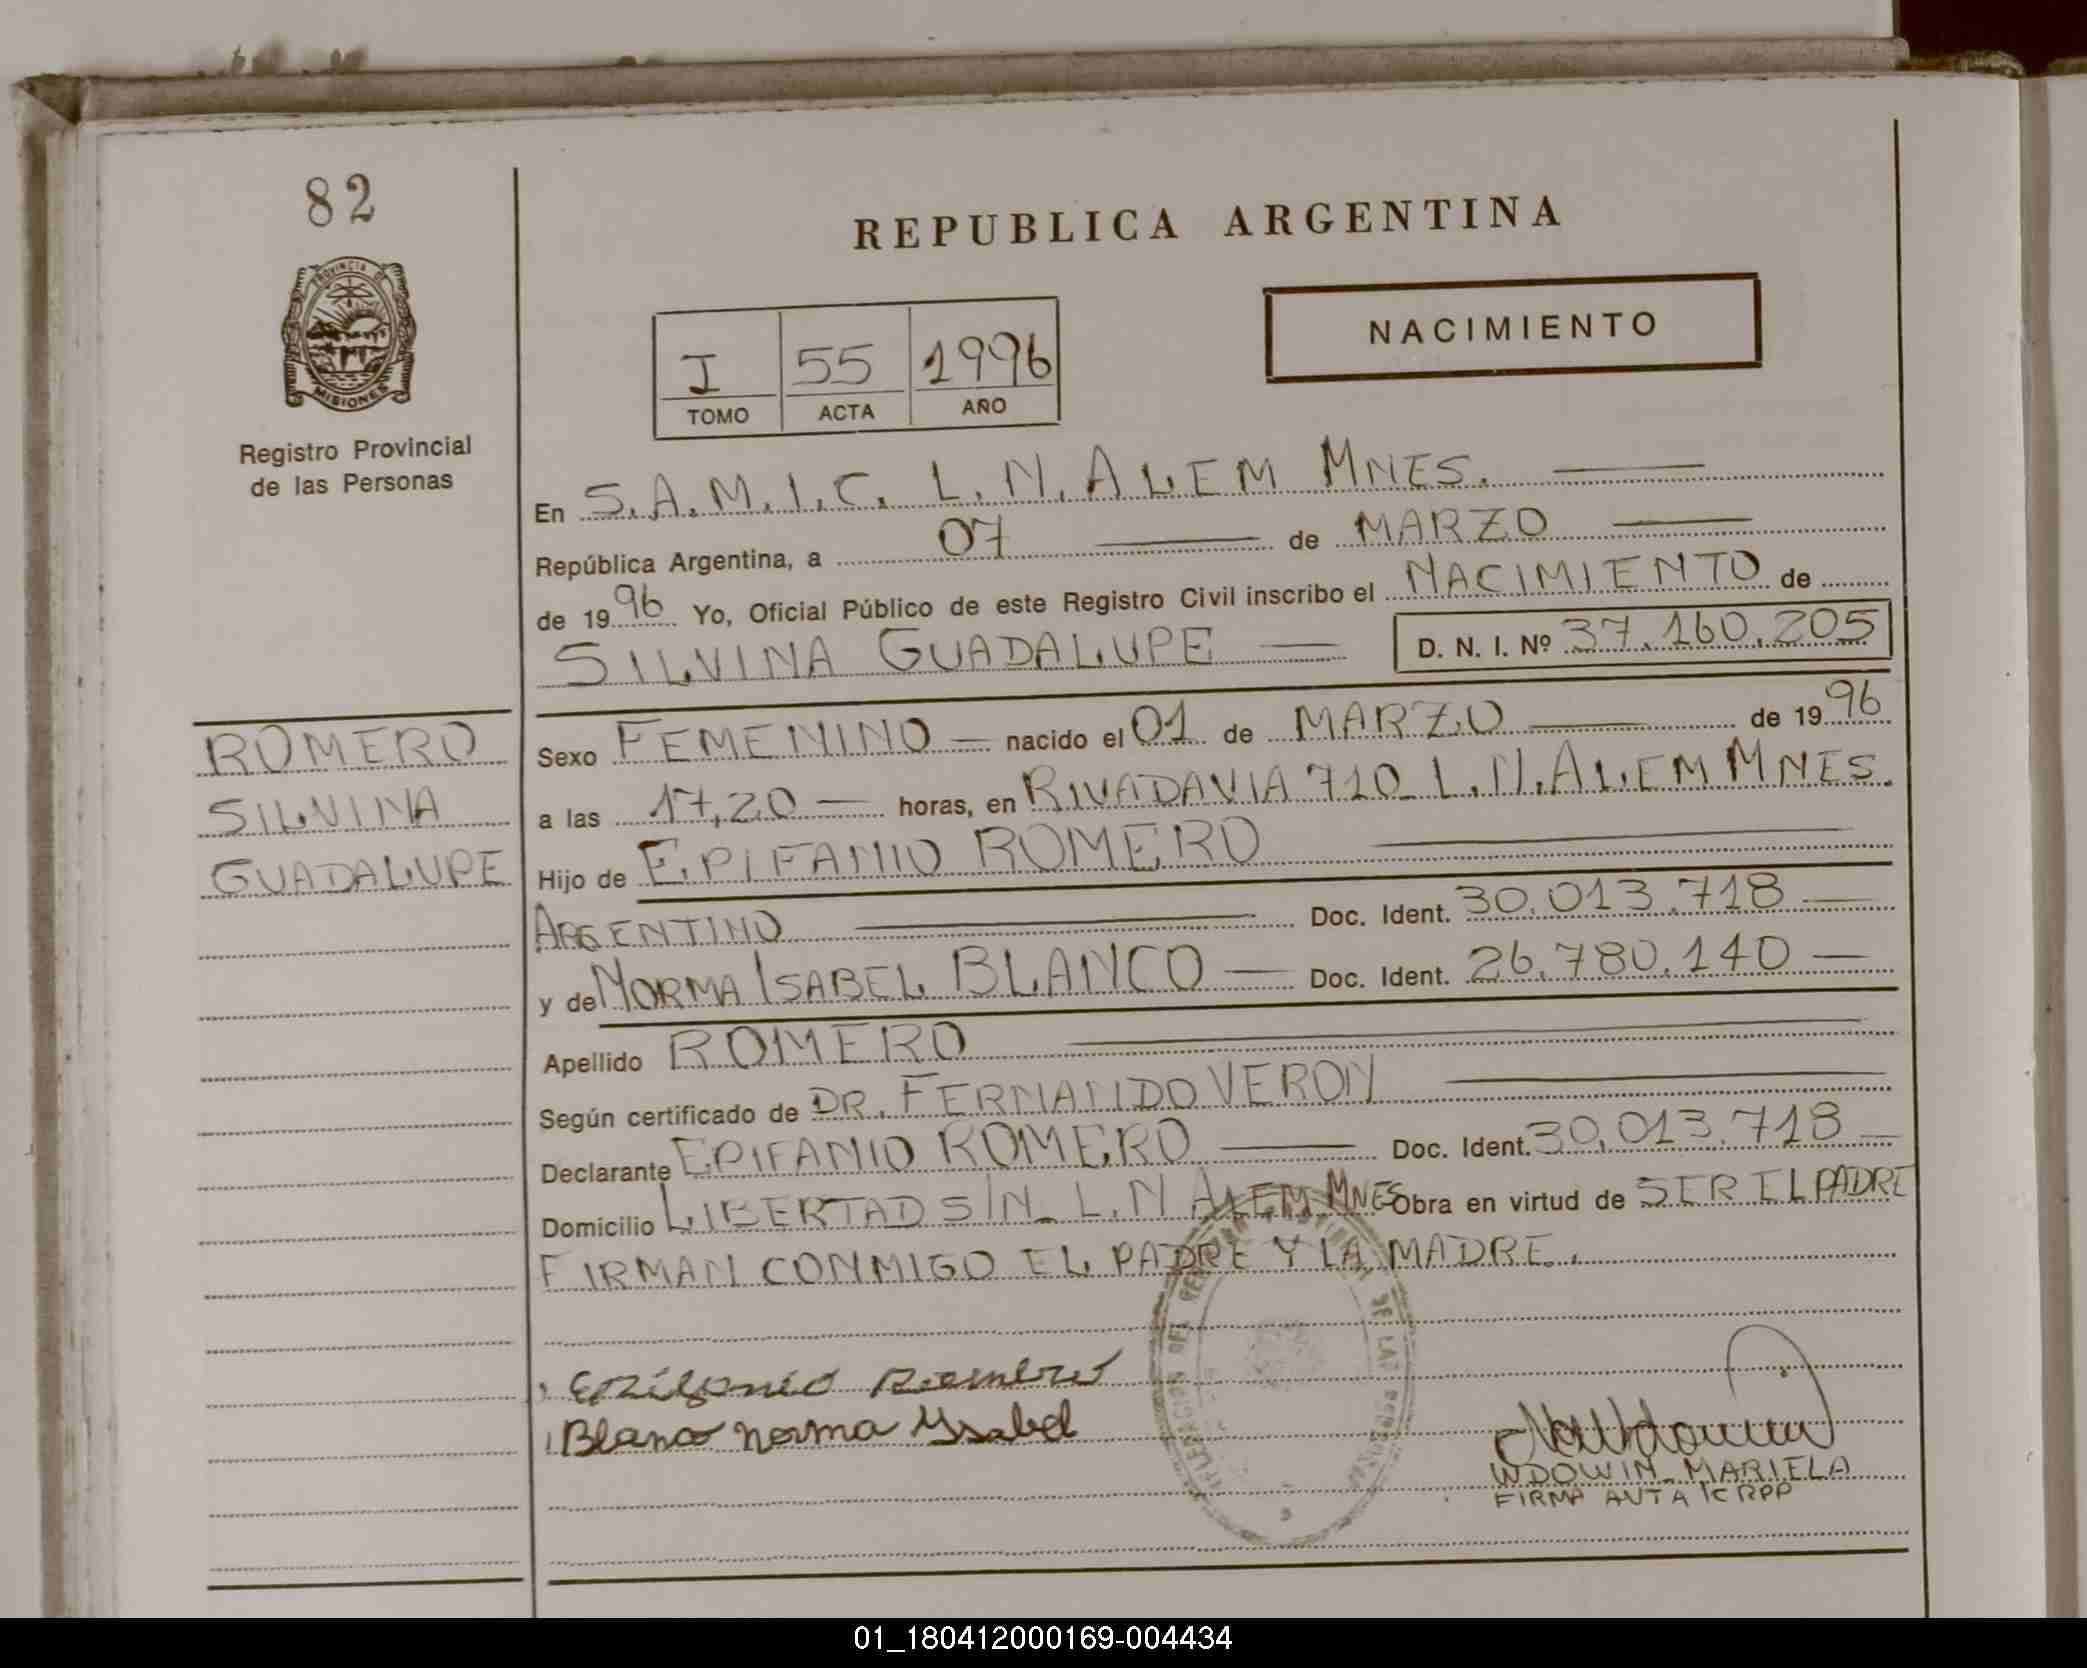 82
REPUBLICA ARGENTINA
PROVINCIA DE
MISIONES
Registro Provincial
de las Personas
I 55 1996
TOMO ACTA AÑO
NACIMIENTO
En S.A.M.I.C. L.N.ALEM MNES.
República Argentina, a 07 de MARZO
de 1996 Yo, Oficial Público de este Registro Civil inscribo el NACIMIENTO de
SILVINA GUADALUPE D. N. I. Nº 37.160.205
ROMERO
SILVINA
GUADALUPE
Sexo FEMENINO nacido el 01 de MARZO de 1996
a las 17,20 horas, en RIVADAVIA 710_ L.N.ALEM MNES.
Hijo de EPIFANIO ROMERO
ARGENTINO Doc. Ident. 30.013.718
y de NORMA ISABEL BLANCO Doc. Ident. 26.780.140
Apellido ROMERO
Según certificado de DR. FERNANDO VERON
Declarante EPIFANIO ROMERO Doc. Ident. 30.013.718
Domicilio LIBERTAD S/N_ L.N ALEM MNES Obra en virtud de SER EL PADRE
FIRMAN CONMIGO EL PADRE Y LA MADRE.
Epifanio Romero
Blanco Norma Ysabel
WDOWIN_ MARIELA
FIRMA AUTA
01_180412000169-004434